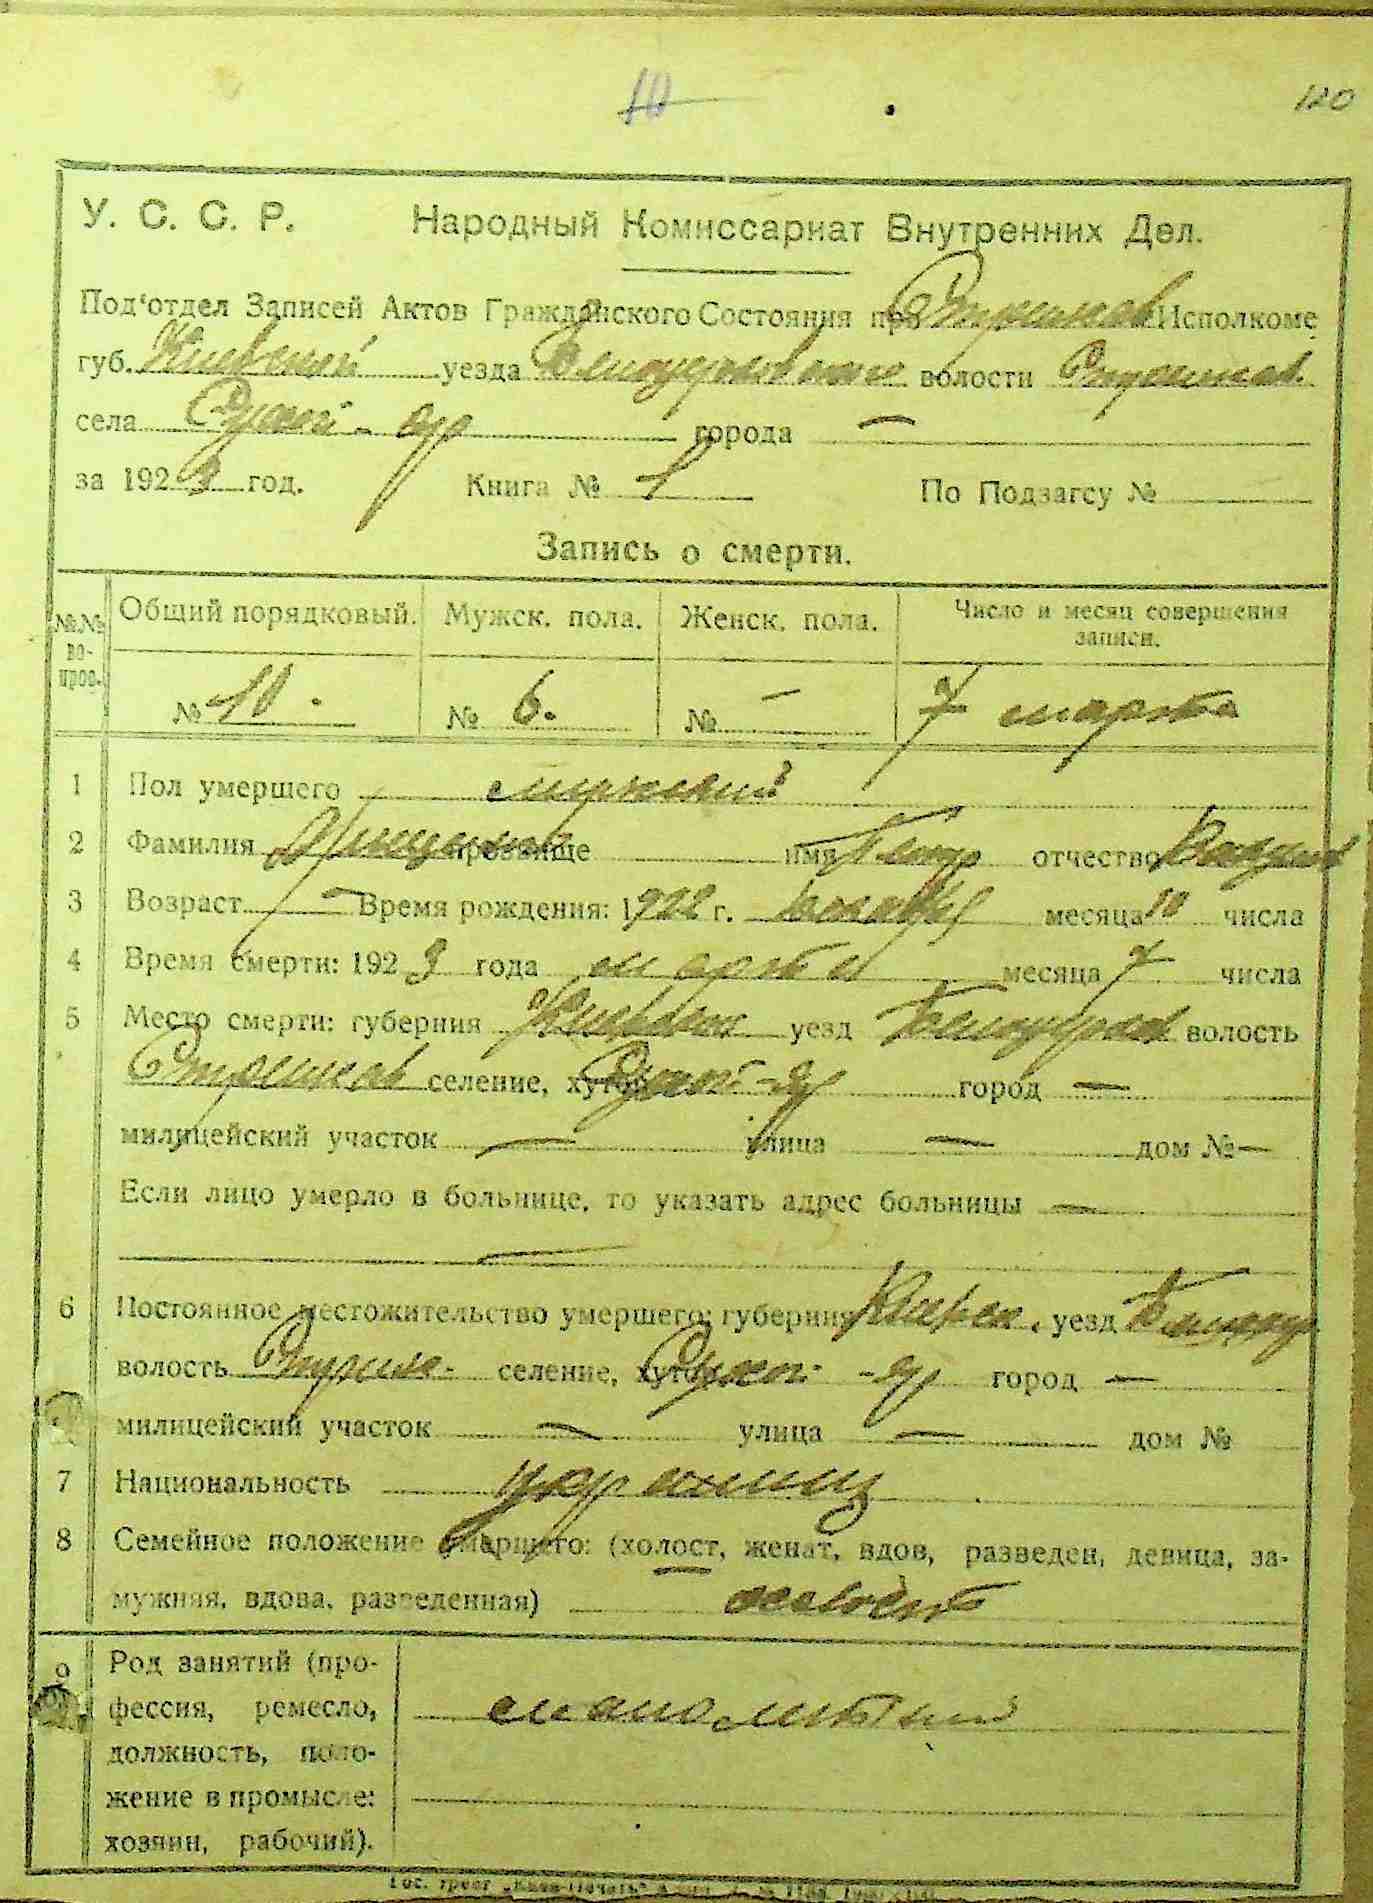 10
120
У. С. С. Р. Народный Комиссариат Внутренних Дел.
Под‘отдел Записей Актов Гражданского Состояния при Исполкоме
губ. Киевской уезда Белоцерковского волости
села Сухой-Яр города —
за 1923 год. Книга № 1 По Подзагсу №
Запись о смерти.
№№ вопрос. Общий порядковый. Мужск. пола. Женск. пола. Число и месяц совершения записи.
№ 10. № 6. № — 7 марта
1 Пол умершего мужской
2 Фамилия прозвище имя Петр отчество
3 Возраст — Время рождения: 1922 г. месяца 10 числа
4 Время смерти: 1923 года марта месяца 7 числа
5 Место смерти: губерния Киевск уезд Белоцерков волость
селение, хутор Сухой-Яр город —
милицейский участок — улица — дом № —
Если лицо умерло в больнице, то указать адрес больницы —
—
6 Постоянное местожительство умершего: губерния Киевск. уезд Белоцер
волость селение, хутор Сухой-Яр город —
милицейский участок — улица — дом №
7 Национальность украинец
8 Семейное положение умершего: (холост, женат, вдов, разведен, девица, за-
мужняя, вдова, разведенная) холост
9 Род занятий (про-
фессия, ремесло, малолетний
должность, поло-
жение в промысле:
хозяин, рабочий).